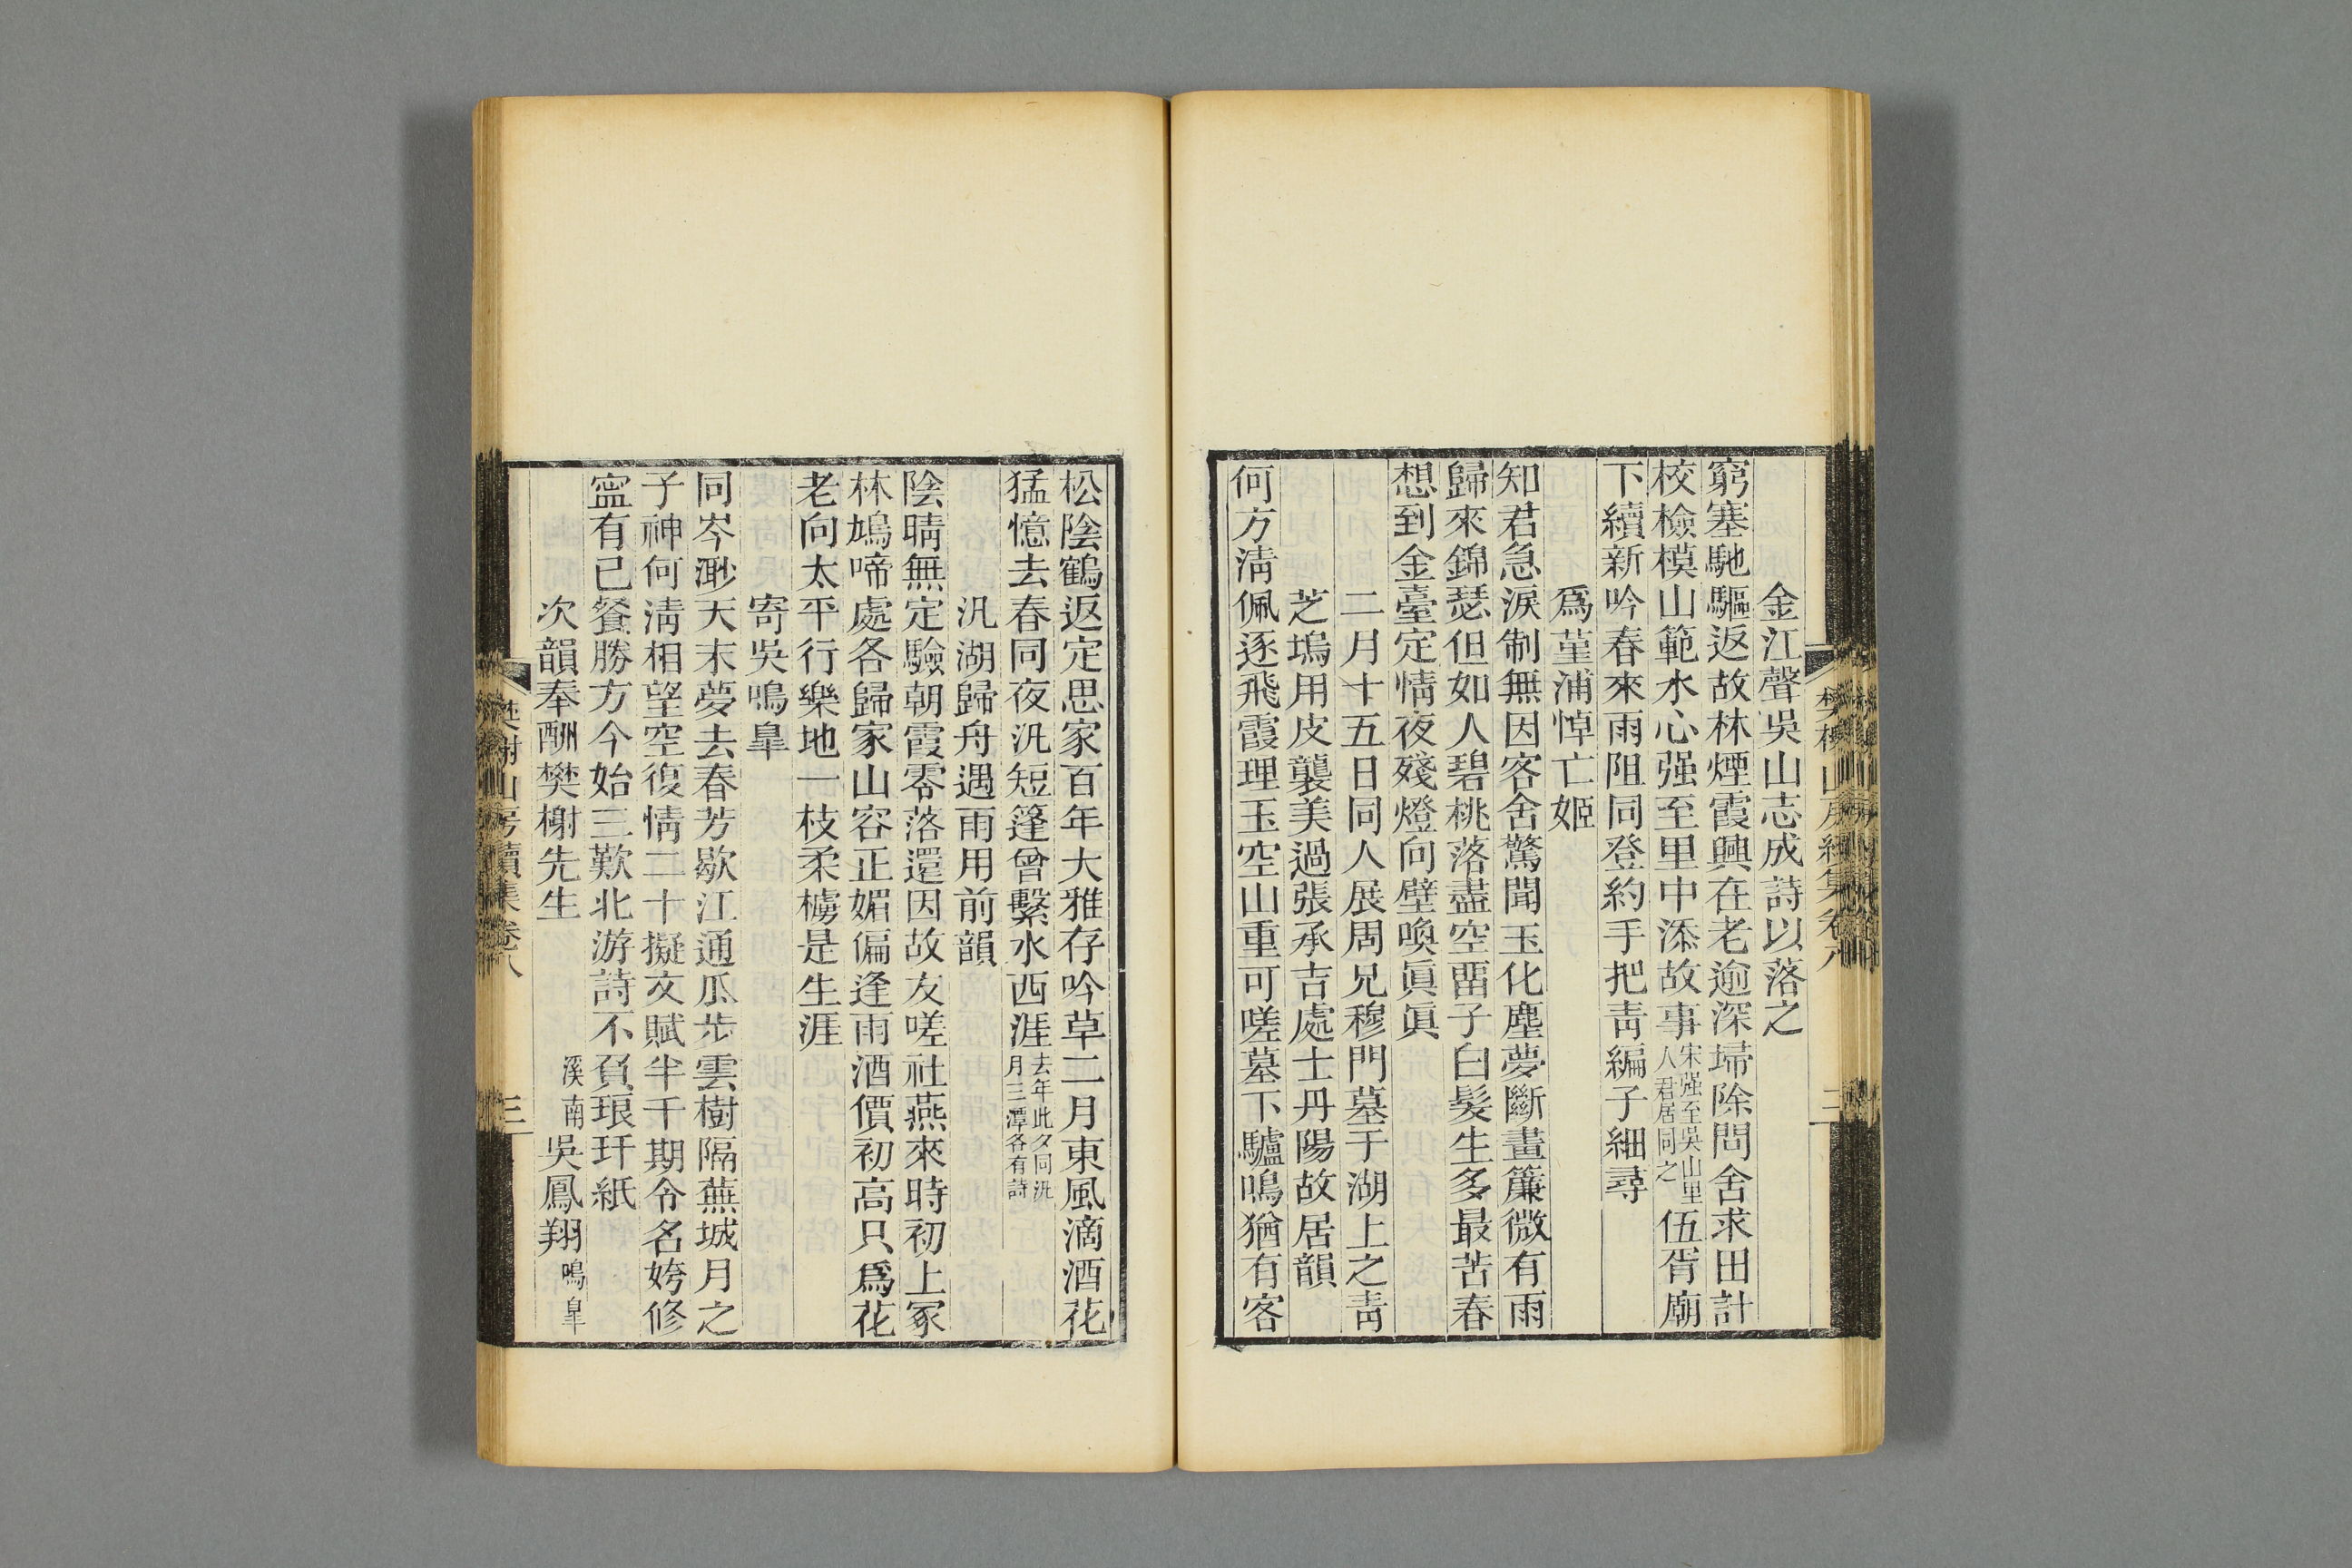 金江聲吳山志成詩以落之
窮塞馳驅返故林煙霞興在老逾深埽除問舍求田計
校檢模山範水心强至里中添故事宋强至吳山里八君居同之伍胥廟
下續新吟春來雨阻同登約手把靑編子細尋
爲堇浦悼亡姬
知君急淚制無因客舍驚聞玉化塵夢斷畫簾微有雨
歸來錦瑟但如人碧桃落盡空畱子白髮生多最苦春
想到金臺定情夜殘燈向壁喚眞眞
二月十五日同人展周兄穆門墓于湖上之靑
芝塢用皮襲美過張承吉處士丹陽故居韻
何方淸佩逐飛霞理玉空山重可嗟墓下驢鳴猶有客
松陰鶴返定思家百年大雅存吟草二月東風滴酒花
猛憶去春同夜汎短篷曾繫水西涯去年此夕同汎月三潭各有詩
汎湖歸舟遇雨用前韻
陰晴無定驗朝霞零落還因故友嗟社燕來時初上冢
林鳩啼處各歸家山容正媚偏逢雨酒價初高只爲花
老向太平行樂地一枝柔櫓是生涯
寄吳鳴臯
同岑渺天末夢去春芳歇江通瓜步雲樹隔蕪城月之
子神何淸相望空復情二十擬文賦半千期令名姱修
寍有已餐勝方今始三歎北游詩不負琅玕紙
次韻奉酬樊榭先生 溪南吳鳳翔鳴皐
樊榭山房續集卷八 三